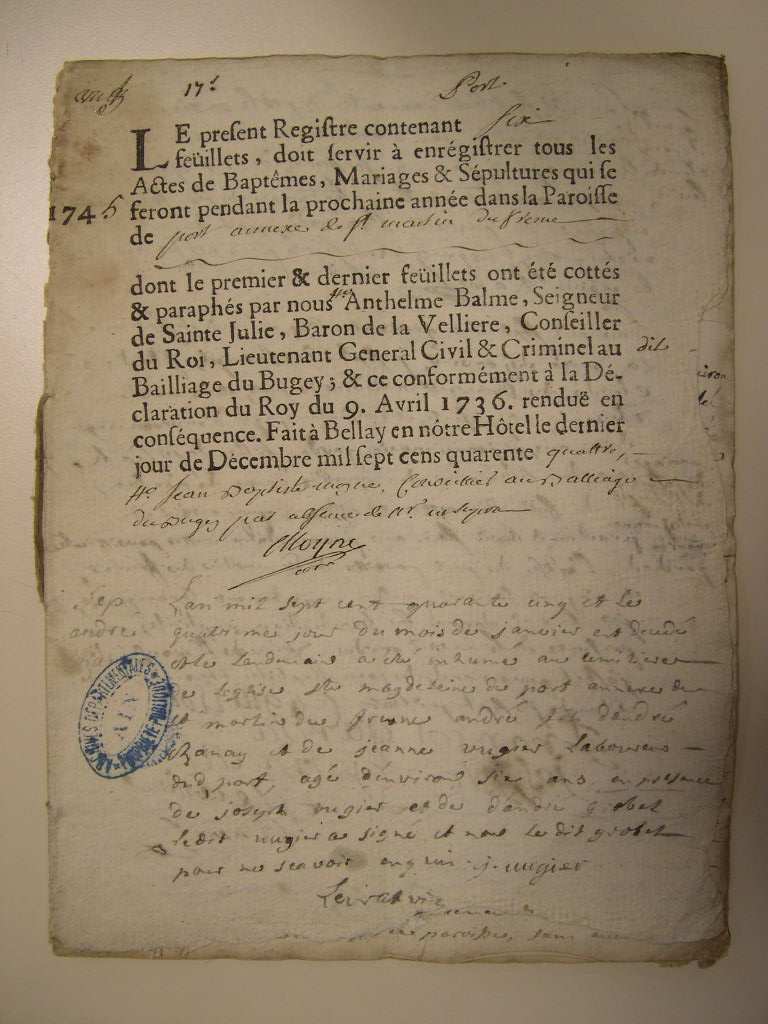 17e
Port.
LE present Registre contenant six
feüillets, doit servir à enrégistrer tous les
Actes de Baptêmes, Mariages & Sépultures qui se
1745 feront pendant la prochaine année dans la Paroisse
de port annexe de st martin du fresne
dont le premier & dernier feüillets ont été cottés
& paraphés par nous Anthelme Balme, Seigneur
de Sainte Julie, Baron de la Velliere, Conseiller
du Roi, Lieutenant General Civil & Criminel au dit
Bailliage du Bugey; & ce conformément à la Dé-
claration du Roy du 9. Avril 1736. renduë en
conséquence. Fait à Bellay en nôtre Hôtel le dernier
jour de Décembre mil sept cens quarente quattre,
Jean Baptiste moyne, Conseiller au Balliage
du Bugey par absence de
Moyne
Sep
andré
Lan mil sept cent quarante cinq et le
quatrieme jour du mois de janvier est decedé
et le lendemain a eté inhumé au cimitiere
de leglise ste magdeleine du port annexe de
st martin du frene andré fils dandré
et de jeanne nugier laboureur
dud port, agé denviron six ans en presence
de joseph nugier et de dandré grobet
le dit nugier a signé et non le dit grobet
pour ne scavoir enquis j. nugier
ARCHIVES DÉPARTEMENTALES
AIN
PROPRIÉTÉ PUBLIQUE